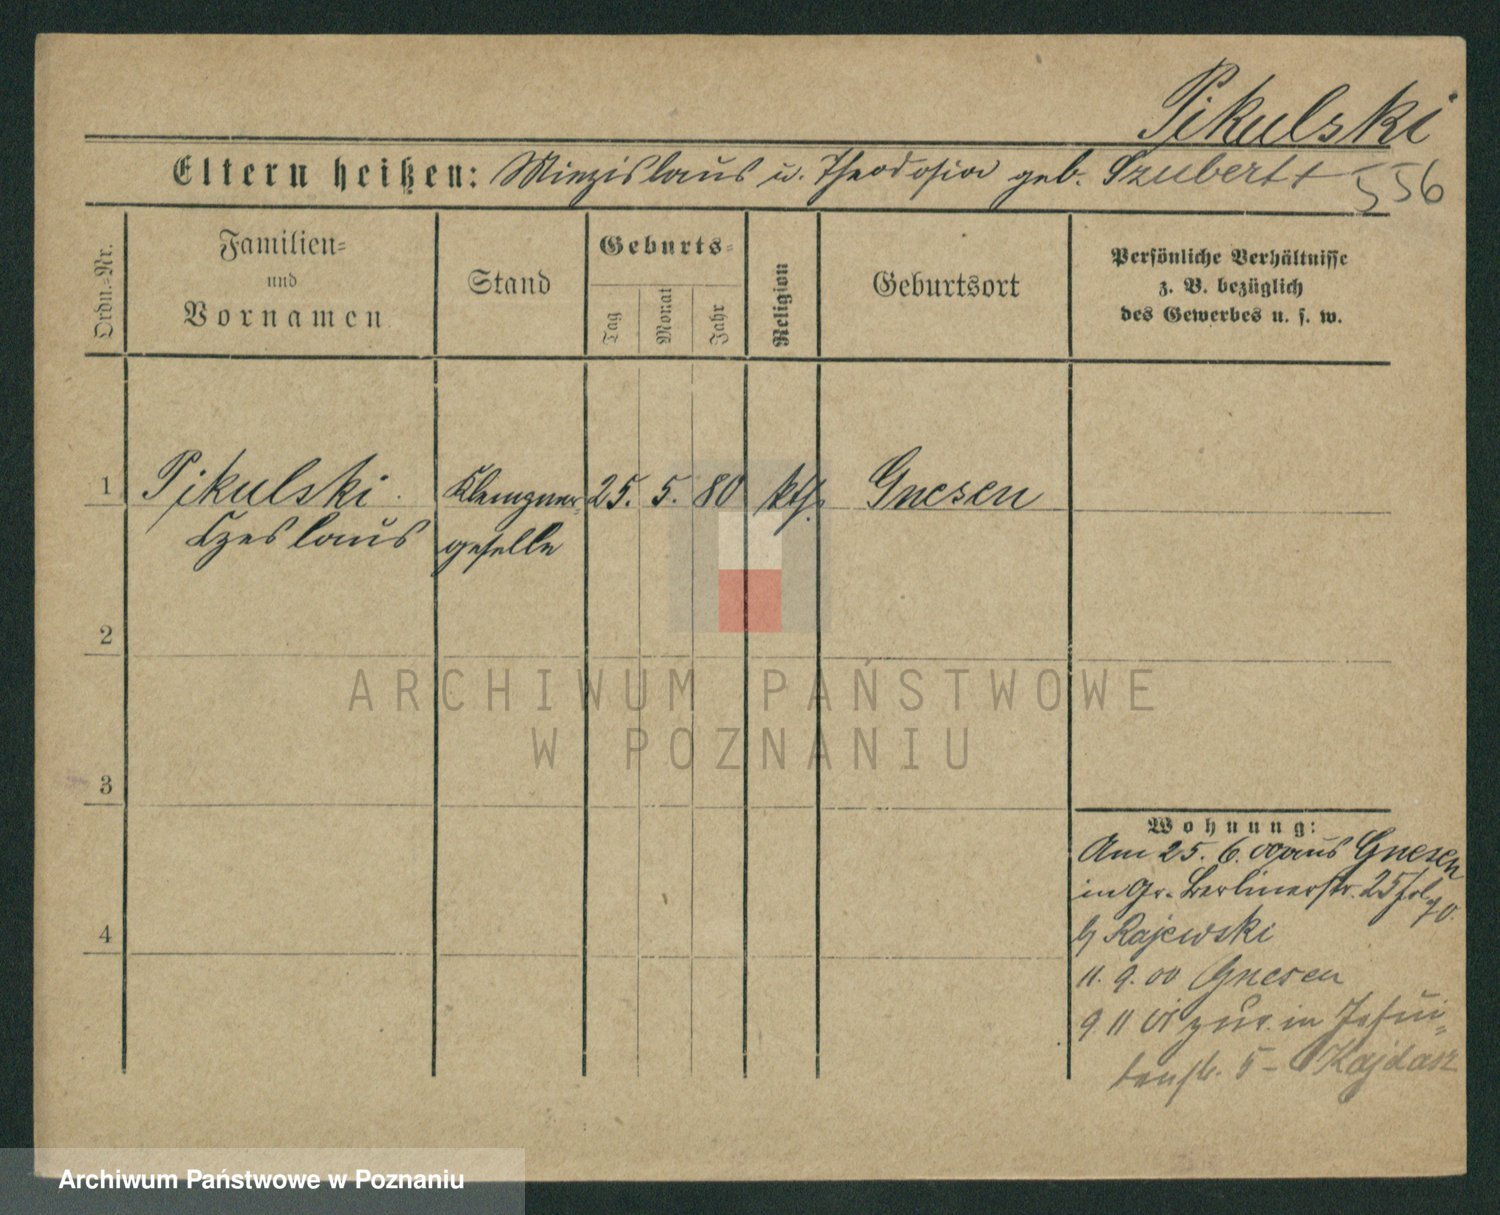 Pikulski
Eltern heißen: Miezislaus u. Theodosia geb. Szubert +
556
Ordn.-Nr.
Familien-
und
Vornamen
Stand
Geburts-
Tag
Monat
Jahr
Religion
Geburtsort
Persönliche Verhältnisse
z. B. bezüglich
des Gewerbes u. s. w.
1 Pikulski Klempner- 25. 5. 80 kth. Gnesen
Czeslaus geselle
2
ARCHIWUM PAŃSTWOWE
W POZNANIU
3
Wohnung:
Am 25. 6. 00 aus Gnesen
in Gr. Berlinerstr. 25
b/ Rajewski
4
11. 9. 00 Gnesen
9 11 01 zur. in Jesui-
tenstr. 5 - Kajdasz
Archiwum Państwowe w Poznaniu